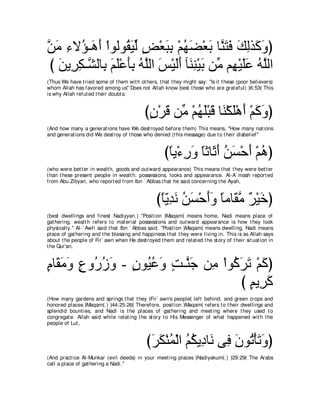 (وَكَذٰلِكَ فَتَنَّا بَعْضَهُمْ بِبَعْضٍ لِّيَقُولُواْ أَهَـٰؤُلاۤءِ مَنَّ
ٱللَّهُ عَلَيْهِم مِّن بَيْنِنَآ أَلَيْسَ ٱللَّهُ بِأَعْلَمَ بِالشَّـكِرِينَ )
(Thus We have tried some of them with others, that they might say: "Is it these (poor believers)
whom Allah has favored among us" Does not Allah know best those who are grateful) )6:53( This
is why Allah refuted their doubts:
(وَكَمْ أَهْلَكْنَا قَبْلَهُمْ مِّن قَرْنٍ)
(And how many a generations have We destroyed before them) This means, "How many nations
and generations did We destroy of those who denied (this message) due to their disbelief"
(هُمْ أَحْسَنُ أَثَاثاً وَرِءْياً)
(who were better in wealth, goods and outward appearance) This means that they were better
than these present people in wealth, possessions, looks and appearance. Al-A`mash reported
from Abu Zibyan, who reported from Ibn `Abbas that he said concerning the Ayah,
(خَيْرٌ مَّقَاماً وَأَحْسَنُ نَدِيّاً)
(best dwellings and finest Nadiyyan.) "Position )Maqam( means home, Nadi means place of
gathering, wealth refers to material possessions and outward appearance is how they look
physically." Al-`Awfi said that Ibn `Abbas said, "Position )Maqam( means dwelling, Nadi means
place of gathering and the blessing and happiness that they were living in. This is as Allah says
about the people of Fir`awn when He destroyed them and related the story of their situation in
the Qur'an,
(كَمْ تَرَكُواْ مِن جَنَّـتٍ وَعُيُونٍ - وَزُرُوعٍ وَمَقَامٍ
كَرِيمٍ )
(How many gardens and springs that they )Fir`awn's people( left behind, and green crops and
honored places )Maqam(.) )44:25-26( Therefore, position )Maqam( refers to their dwellings and
splendid bounties, and Nadi is the places of gathering and meeting where they used to
congregate. Allah said while relating the story to His Messenger of what happened with the
people of Lut,
(وَتَأْتُونَ فِى نَادِيكُمُ الْمُنْكَرَ)
(And practice Al-Munkar (evil deeds) in your meeting places )Nadiyakum(.) )29:29( The Arabs
call a place of gathering a Nadi."